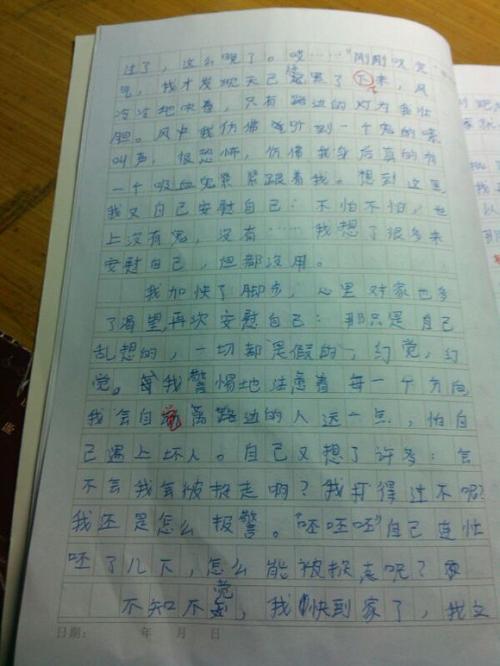 过了，这么晚了。哎……"刚刚叹完
气，我才发现天已经黑了下来，风
冷冷地吹着，只有路边的灯为我壮
胆。风中我仿佛听到一个鬼的嚎
叫声，很恐怖，仿佛我身后真的有
一个吸血鬼紧紧跟着我。想到这里
我又自己安慰自己：不怕不怕，世
上没有鬼，没有……我想了很多来
安慰自己，但都没用。
我加快了脚步，心里对家也多
了渴望，再次安慰自己：那只是自己
乱想的，一切都是假的，幻觉，幻
觉。我警惕地注意着每一个方向
我会自觉离路边的人远一点，怕自
己遇上坏人。自己又想了许多：会
不会我会被掠走啊？我打得过不呢？
我还是怎么报警。"呸呸呸"自己连忙
呸了几下，怎么能被掠走呢？
不知不觉，我快到家了，我又
日期： 年 月 日